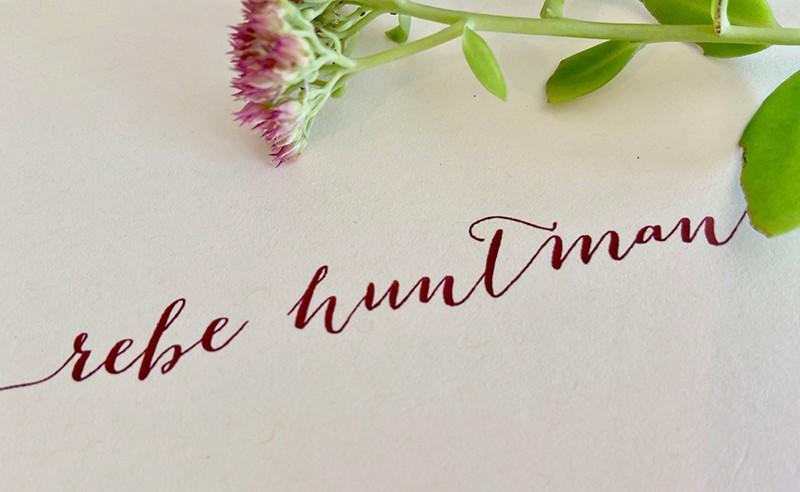 rebe huntman